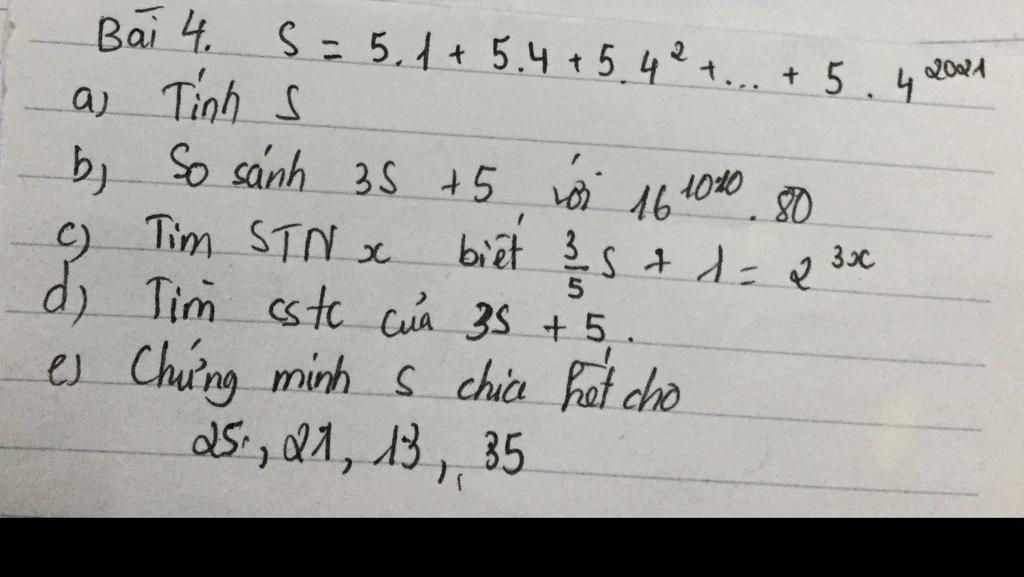 Bài 4. S = 5.1 + 5.4 + 5.4² + ... + 5 . 4²⁰²¹
a) Tính S
b) So sánh 3S + 5 với 16¹⁰¹⁰ . 80
c) Tìm STN x biết 3/5 S + 1 = 2³ˣ
d) Tìm cstc của 3S + 5.
e) Chứng minh S chia hết cho
25, 21, 13, 35